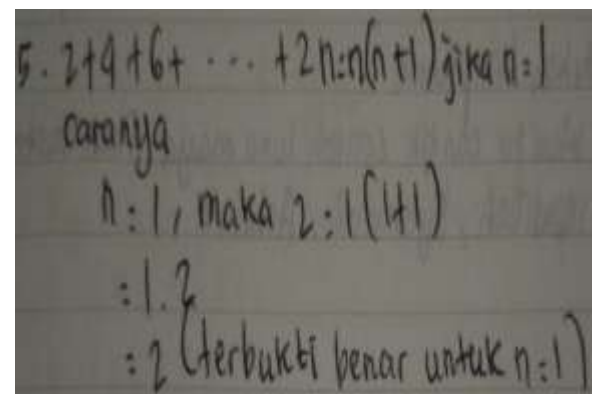 5. 2+4+6+ ... +2n=n(n+1) jika n=1
caranya
n=1, maka 2=1(1+1)
=1.2
=2 (terbukti benar untuk n=1)